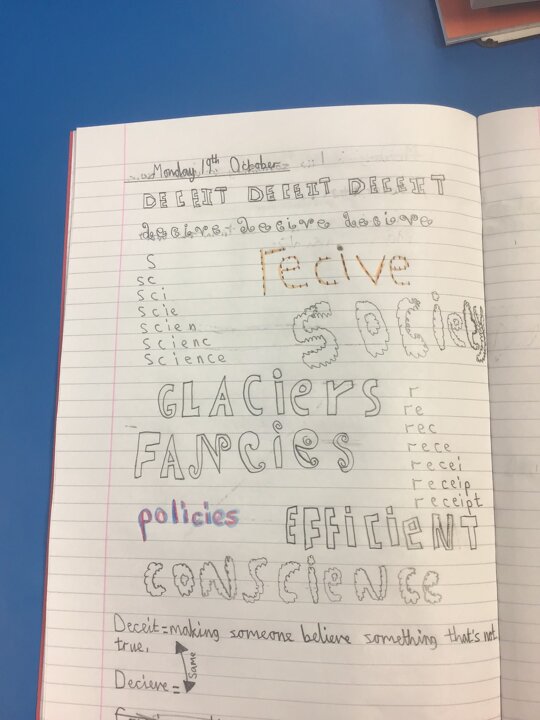 Monday 19th October
DECEIT DECEIT DECEIT
decive decive decive
s
sc
sci
scie
scien
scienc
science
recive
socie
GLACiers
r
re
rec
rece
recei
receip
receipt
FANCies
policies
EFFiCieNT
CONSCieNCe
Deceit = making someone believe something that's not
true.
Same
Decieve =